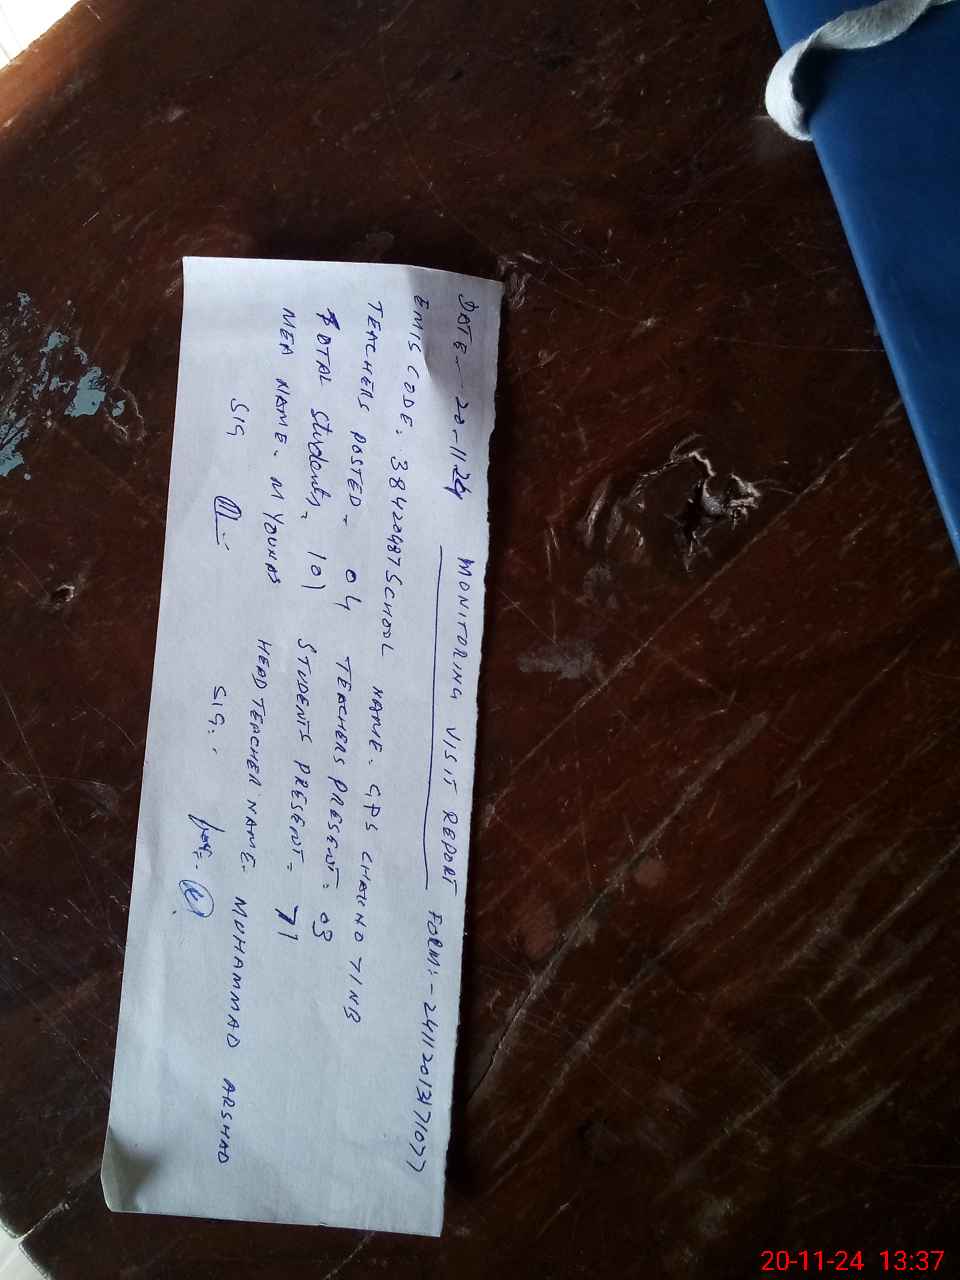 DATE- 20-11-24 MONITORING VISIT REPORT FORM:- 24112013171077
EMIS CODE. 38420487 SCHOOL NAME. GPS CHAH NO 7 INB
TEACHERS POSTED- 04 TEACHERS PRESENT: 03
TOTAL Students= 101 STUDENTS PRESENT= 71
MEA NAME. M YOUNAS HEAD TEACHER NAME. MUHAMMAD ARSHAD
SIG SIG:.
20-11-24 13:37